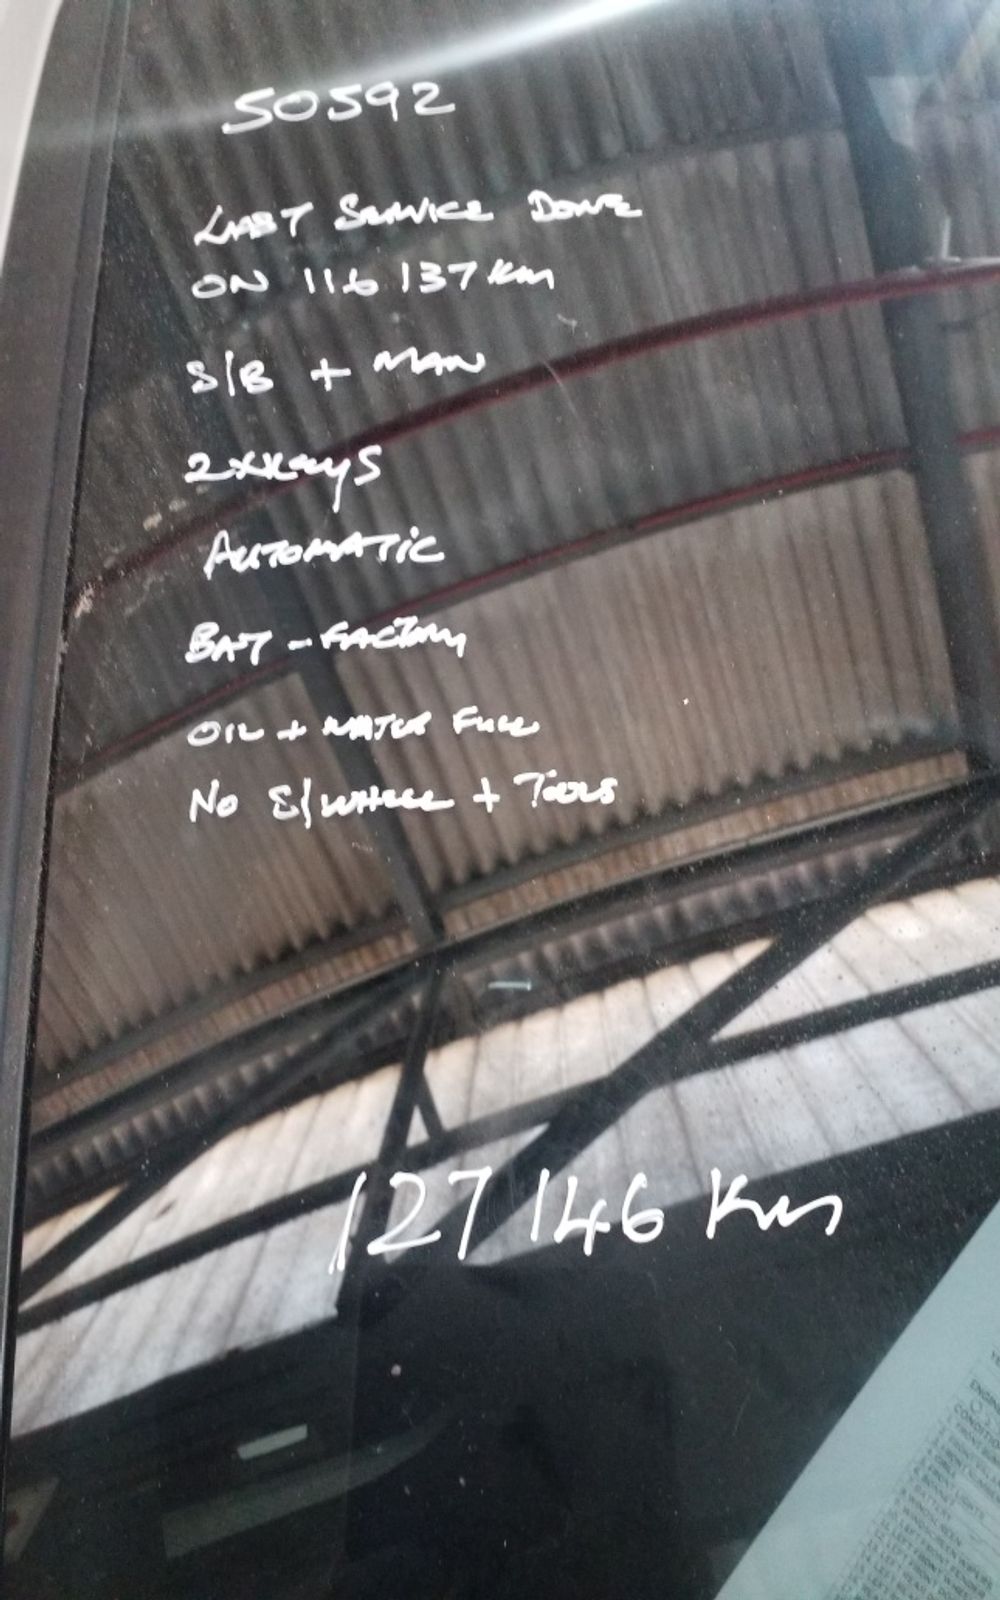 50592
LAST SERVICE DONE
ON 116 137 Km
S/B + MAN
2xKeyS
AUTOMATIC
BAT - FACTORY
OIL + WATER FULL
No S/WHEEL + TOOLS
127 146 Km
BATTERY
WINDSCREEN